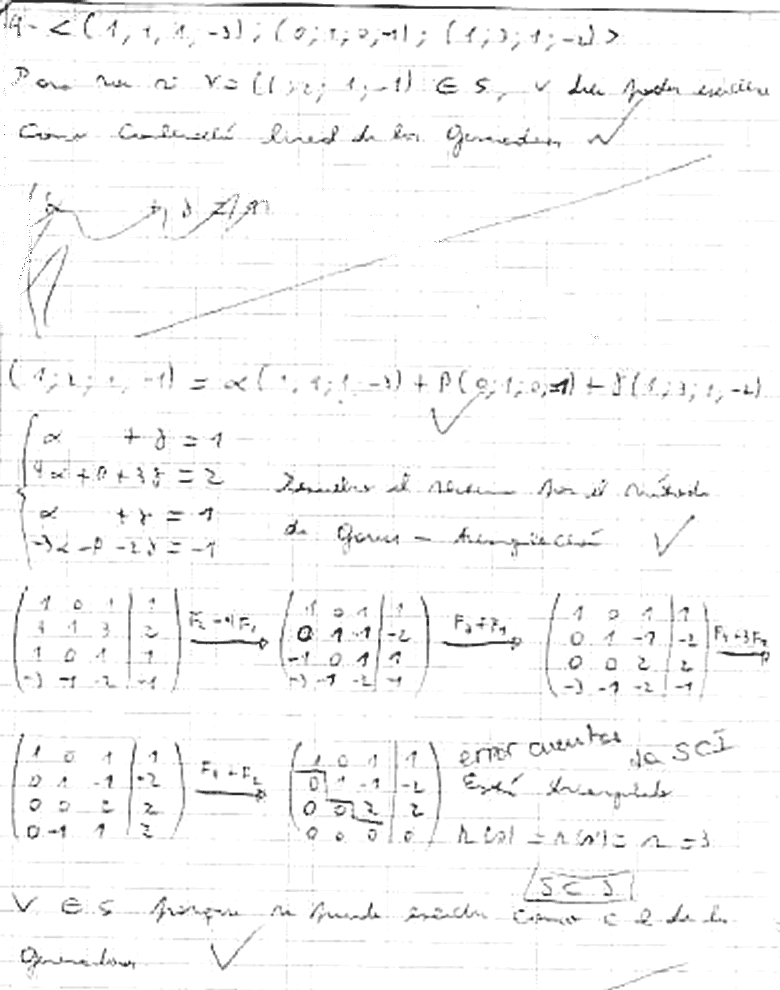 < (1, 1, 1, -3); (0; 1; 0; -1); (1; 3; 1; -2) >
Para ver si V = (1; 2; 1; -1) ∈ S, v debe poder escribirse
como combinación lineal de los generadores
(1; 2; 1; -1) = α(1, 1; 1; -3) + β(0; 1; 0; -1) + γ(1; 3; 1; -2)
α + γ = 1
4α + β + 3γ = 2
α + γ = 1
-3α - β - 2γ = -1
Resuelvo el sistema por el método
de Gauss - triangulación
1 0 1 | 1
4 1 3 | 2
1 0 1 | 1
-3 -1 -2 | -1
F2 - 4F1
1 0 1 | 1
0 1 -1 | -2
-1 0 1 | 1
-3 -1 -2 | -1
F3 + F1
1 0 1 | 1
0 1 -1 | -2
0 0 2 | 2
-3 -1 -2 | -1
F4 + 3F1
1 0 1 | 1
0 1 -1 | -2
0 0 2 | 2
0 -1 1 | 2
F4 + F2
1 0 1 | 1
0 1 -1 | -2
0 0 2 | 2
0 0 0 | 0
error cuentas da SCI
Está triangulado
= n = 3
V ∈ S porque se puede escribir como c l de los
generadores